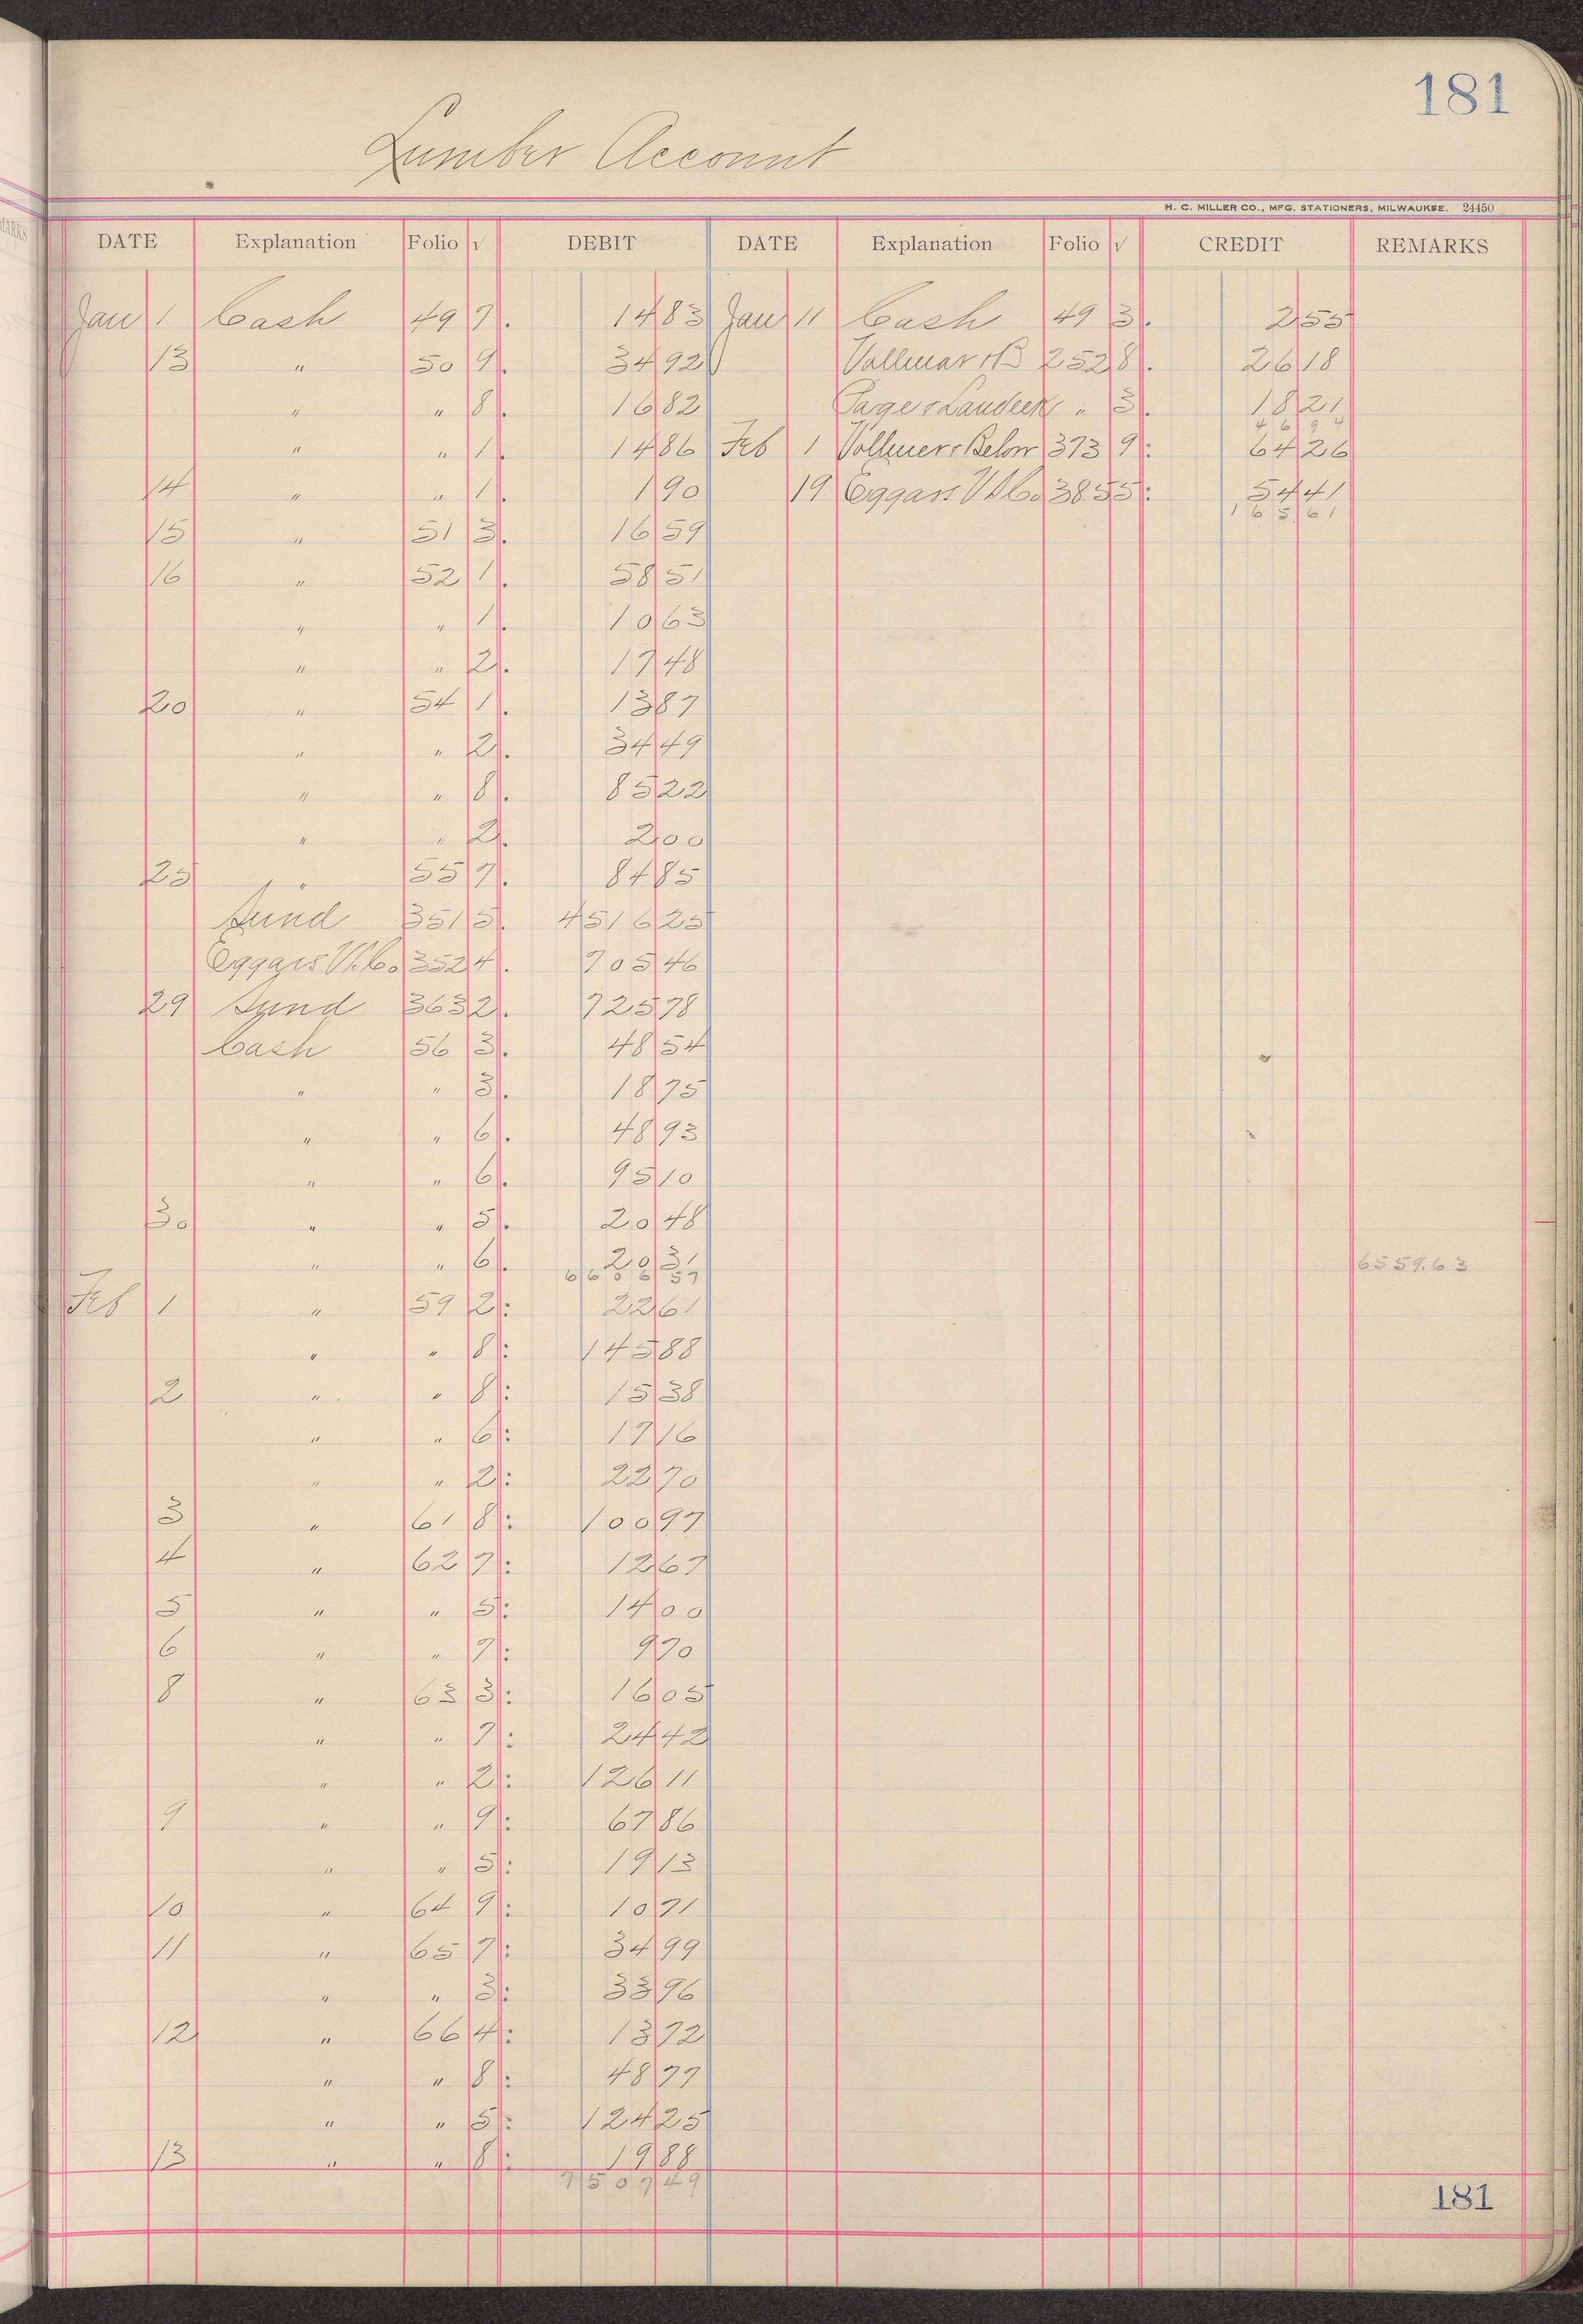 181
Lumber Account
H. C. MILLER CO., MFG. STATIONERS, MILWAUKEE. 24450
DATE Explanation Folio √ DEBIT DATE Explanation Folio √ CREDIT REMARKS
Jan 1 Cash 49 7 14 83 Jan 11 Cash 49 3 2 55
13 " 50 9 34 92 Vollmar &B 252 8 26 18
" " 8 16 82 Page & Landeck " 3 18 21
46 94
" " 1 14 86 Feb 1 Vollmer & Below 373 9 64 26
14 " " 1 1 90 19 Eggars V & Co 385 5 54 41
165 61
15 " 51 3 16 59
16 " 52 1 58 51
" " 1 10 63
" " 2 17 48
20 " 54 1 13 87
" " 2 34 49
" " 8 85 22
" " 2 2 00
25 " 55 7 84 85
Sund 351 5 4516 25
Eggars V. Co. 352 4 705 46
29 Sund 363 2 725 78
Cash 56 3 48 54
" " 3 18 75
" " 6 48 93
" " 6 95 10
30 " " 5 20 48
" " 6 20 31 6559.63
6606 57
Feb 1 " 59 2 22 61
" " 8 145 88
2 " " 8 15 38
" " 6 17 16
" " 2 22 70
3 " 61 8 100 97
4 " 62 7 12 67
5 " " 5 14 00
6 " " 7 9 70
8 " 63 3 16 05
" " 7 24 42
" " 2 126 11
9 " " 9 67 86
" " 5 19 13
10 " 64 9 10 71
11 " 65 7 34 99
" " 3 33 96
12 " 66 4 13 72
" " 8 48 77
" " 5 124 25
13 " " 8 19 88
7507 49
181